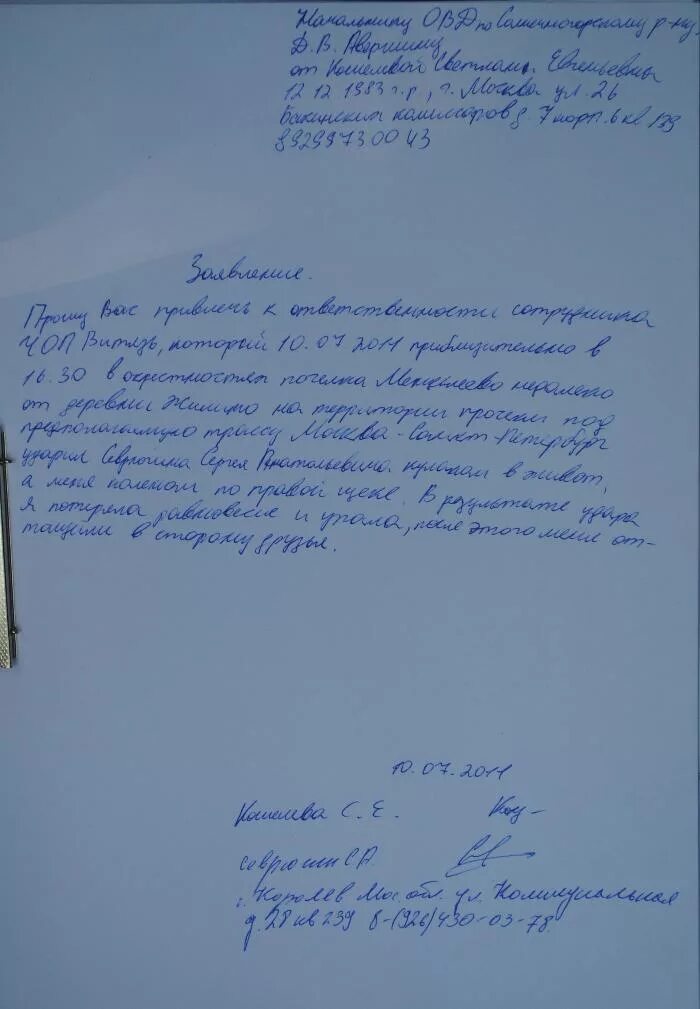 Начальнику ОВД по Солнечногорскому р-ну
Д.В. Аверкину
от Кошелевой Светланы Евгеньевны
12.12.1983 г.р., г. Москва ул. 26
Бакинских комиссаров д. 7 корп. 6 кв 139
89299730043
Заявление.
Прошу Вас привлечь к ответственности сотрудника
ЧОП Витязь, который 10.07.2011 приблизительно в
16.30 в окрестностях поселка Менделеево недалеко
от деревни Жилино на территории просеки под
предполагаемую трассу Москва-Санкт-Петербург
ударил Севрюгина Сергея Анатольевича кулаком в живот,
а меня коленом по правой щеке. В результате удара
я потеряла равновесие и упала, после этого меня от-
тащили в сторону друзья.
10.07.2011
Кошелева С.Е. Кош-
Севрюгин С.А.
г. Королёв Мос. обл. ул. Коммунальная
д. 28 кв 239 8-(926)430-03-78